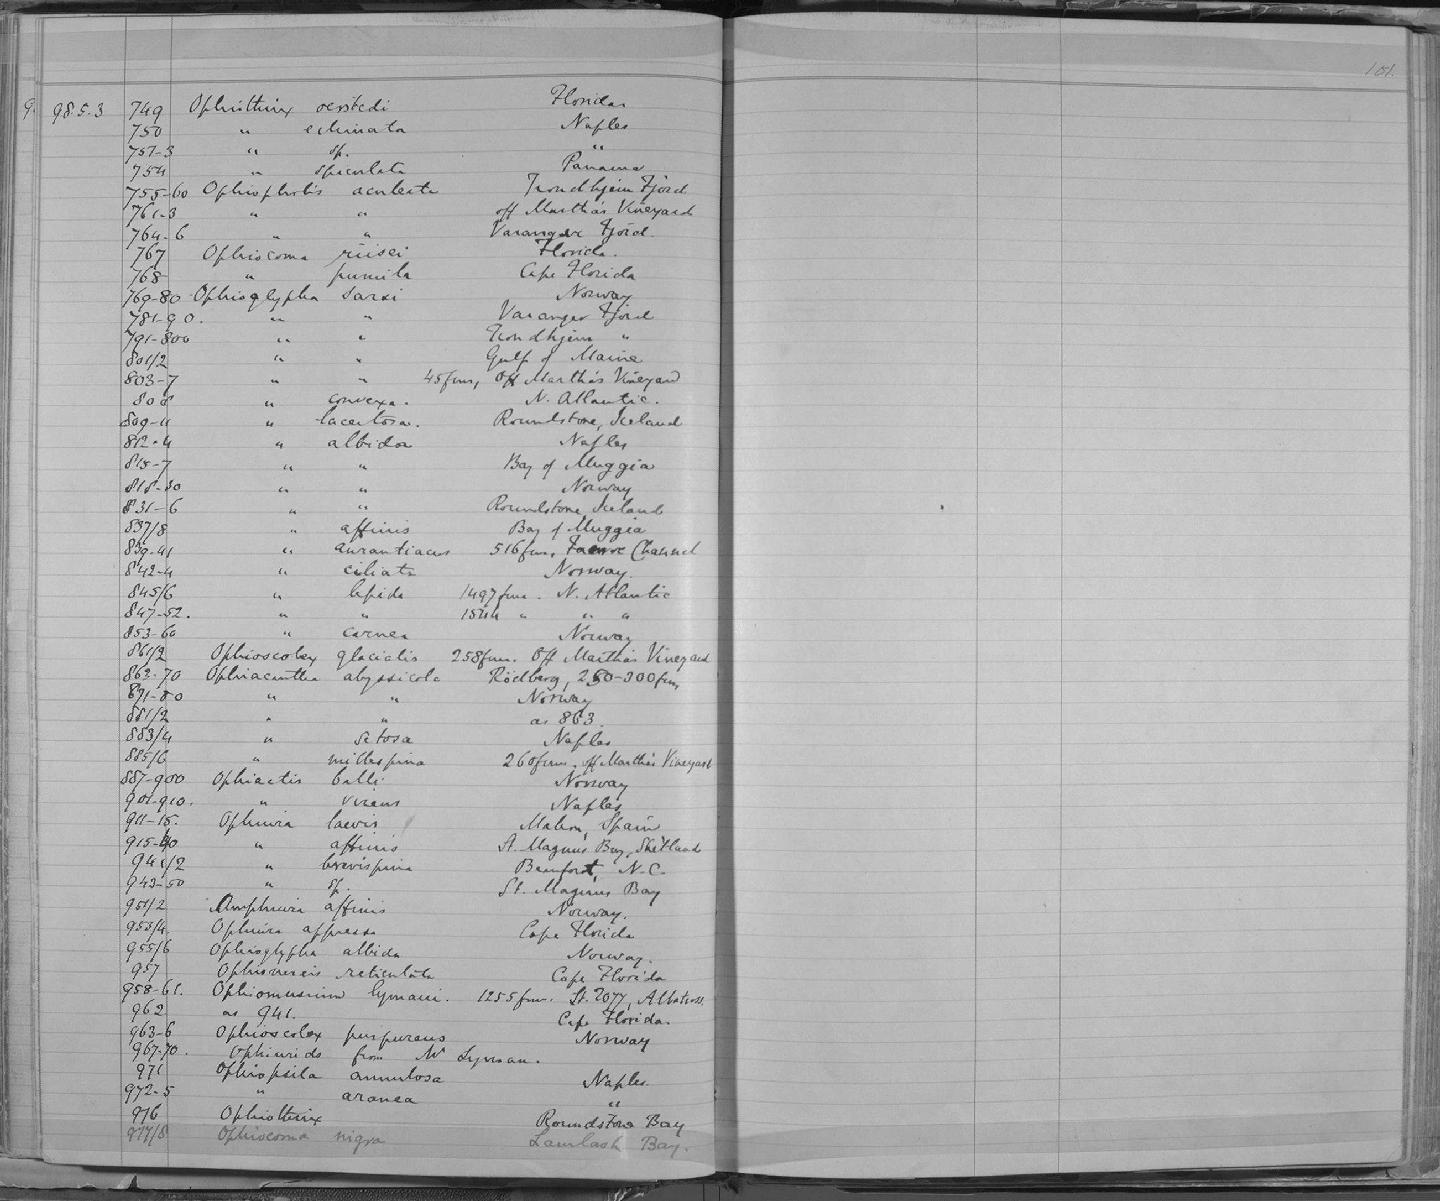 101.
98.5.3 749 Ophiothrix oerstedi Florida
750 " echinata Naples
751-3 " sp. "
754 " spiculata Panama
755-60 Ophiopholis aculeata Trondhjem Fjord
761-3 " " off Martha's Vineyard
764-6 " " Varanger Fjord.
767 Ophiocoma riisei Florida.
768 " pumila Cape Florida
769-80 Ophioglypha sarsi Norway
781-90. " " Varanger Fjord
791-800 " " Trondhjem "
801/2 " " Gulf of Maine
803-7 " " 45 fms, Off Martha's Vineyard
808 " convexa. N. Atlantic.
809-11 " lacertosa. Roundstone, Iceland
812-4 " albida Naples
815-7 " " Bay of Muggia
818-30 " " Norway
831-6 " " Roundstone, Iceland
837/8 " affinis Bay of Muggia
839-41 " aurantiacus 516 fms, Faeroe Channel
842-4 " ciliata Norway.
845/6 " lepida 1497 fms. N. Atlantic
847-52. " " 1544 " " "
853-60 " carnea Norway
861/2 Ophioscolex glacialis 258 fms. Off Martha's Vineyard
862-70 Ophiacantha abyssicola Rödberg, 250-300 fms,
871-80 " " Norway
881/2 " " as 863.
883/4 " setosa Naples
885/6 " millespina 260 fms, off Martha's Vineyard
887-900 Ophiactis balli Norway
901-910. " virens Naples
911-15. Ophiura laevis Mahon, Spain
915-40 " affinis St. Magnus Bay, Shetland
941/2 " brevispina Beaufort, N.C.
943-50 " sp. St. Magnus Bay
951/2 Amphiura affinis Norway.
953/4. Ophiura appressa Cape Florida
955/6 Ophioglypha albida Norway.
957 Ophionereis reticulata Cape Florida
958-61. Ophiomusium lymani. 1255 fms. St. 2077, Albatross.
962 as 941. Cape Florida.
963-6 Ophioscolex purpureus Norway
967-70. Ophiurids from Mr Lyman.
971 Ophiopsila annulosa Naples
972-5 " aranea "
976 Ophiothrix Roundstone Bay
977/8 Ophiocoma nigra Lamlash Bay.